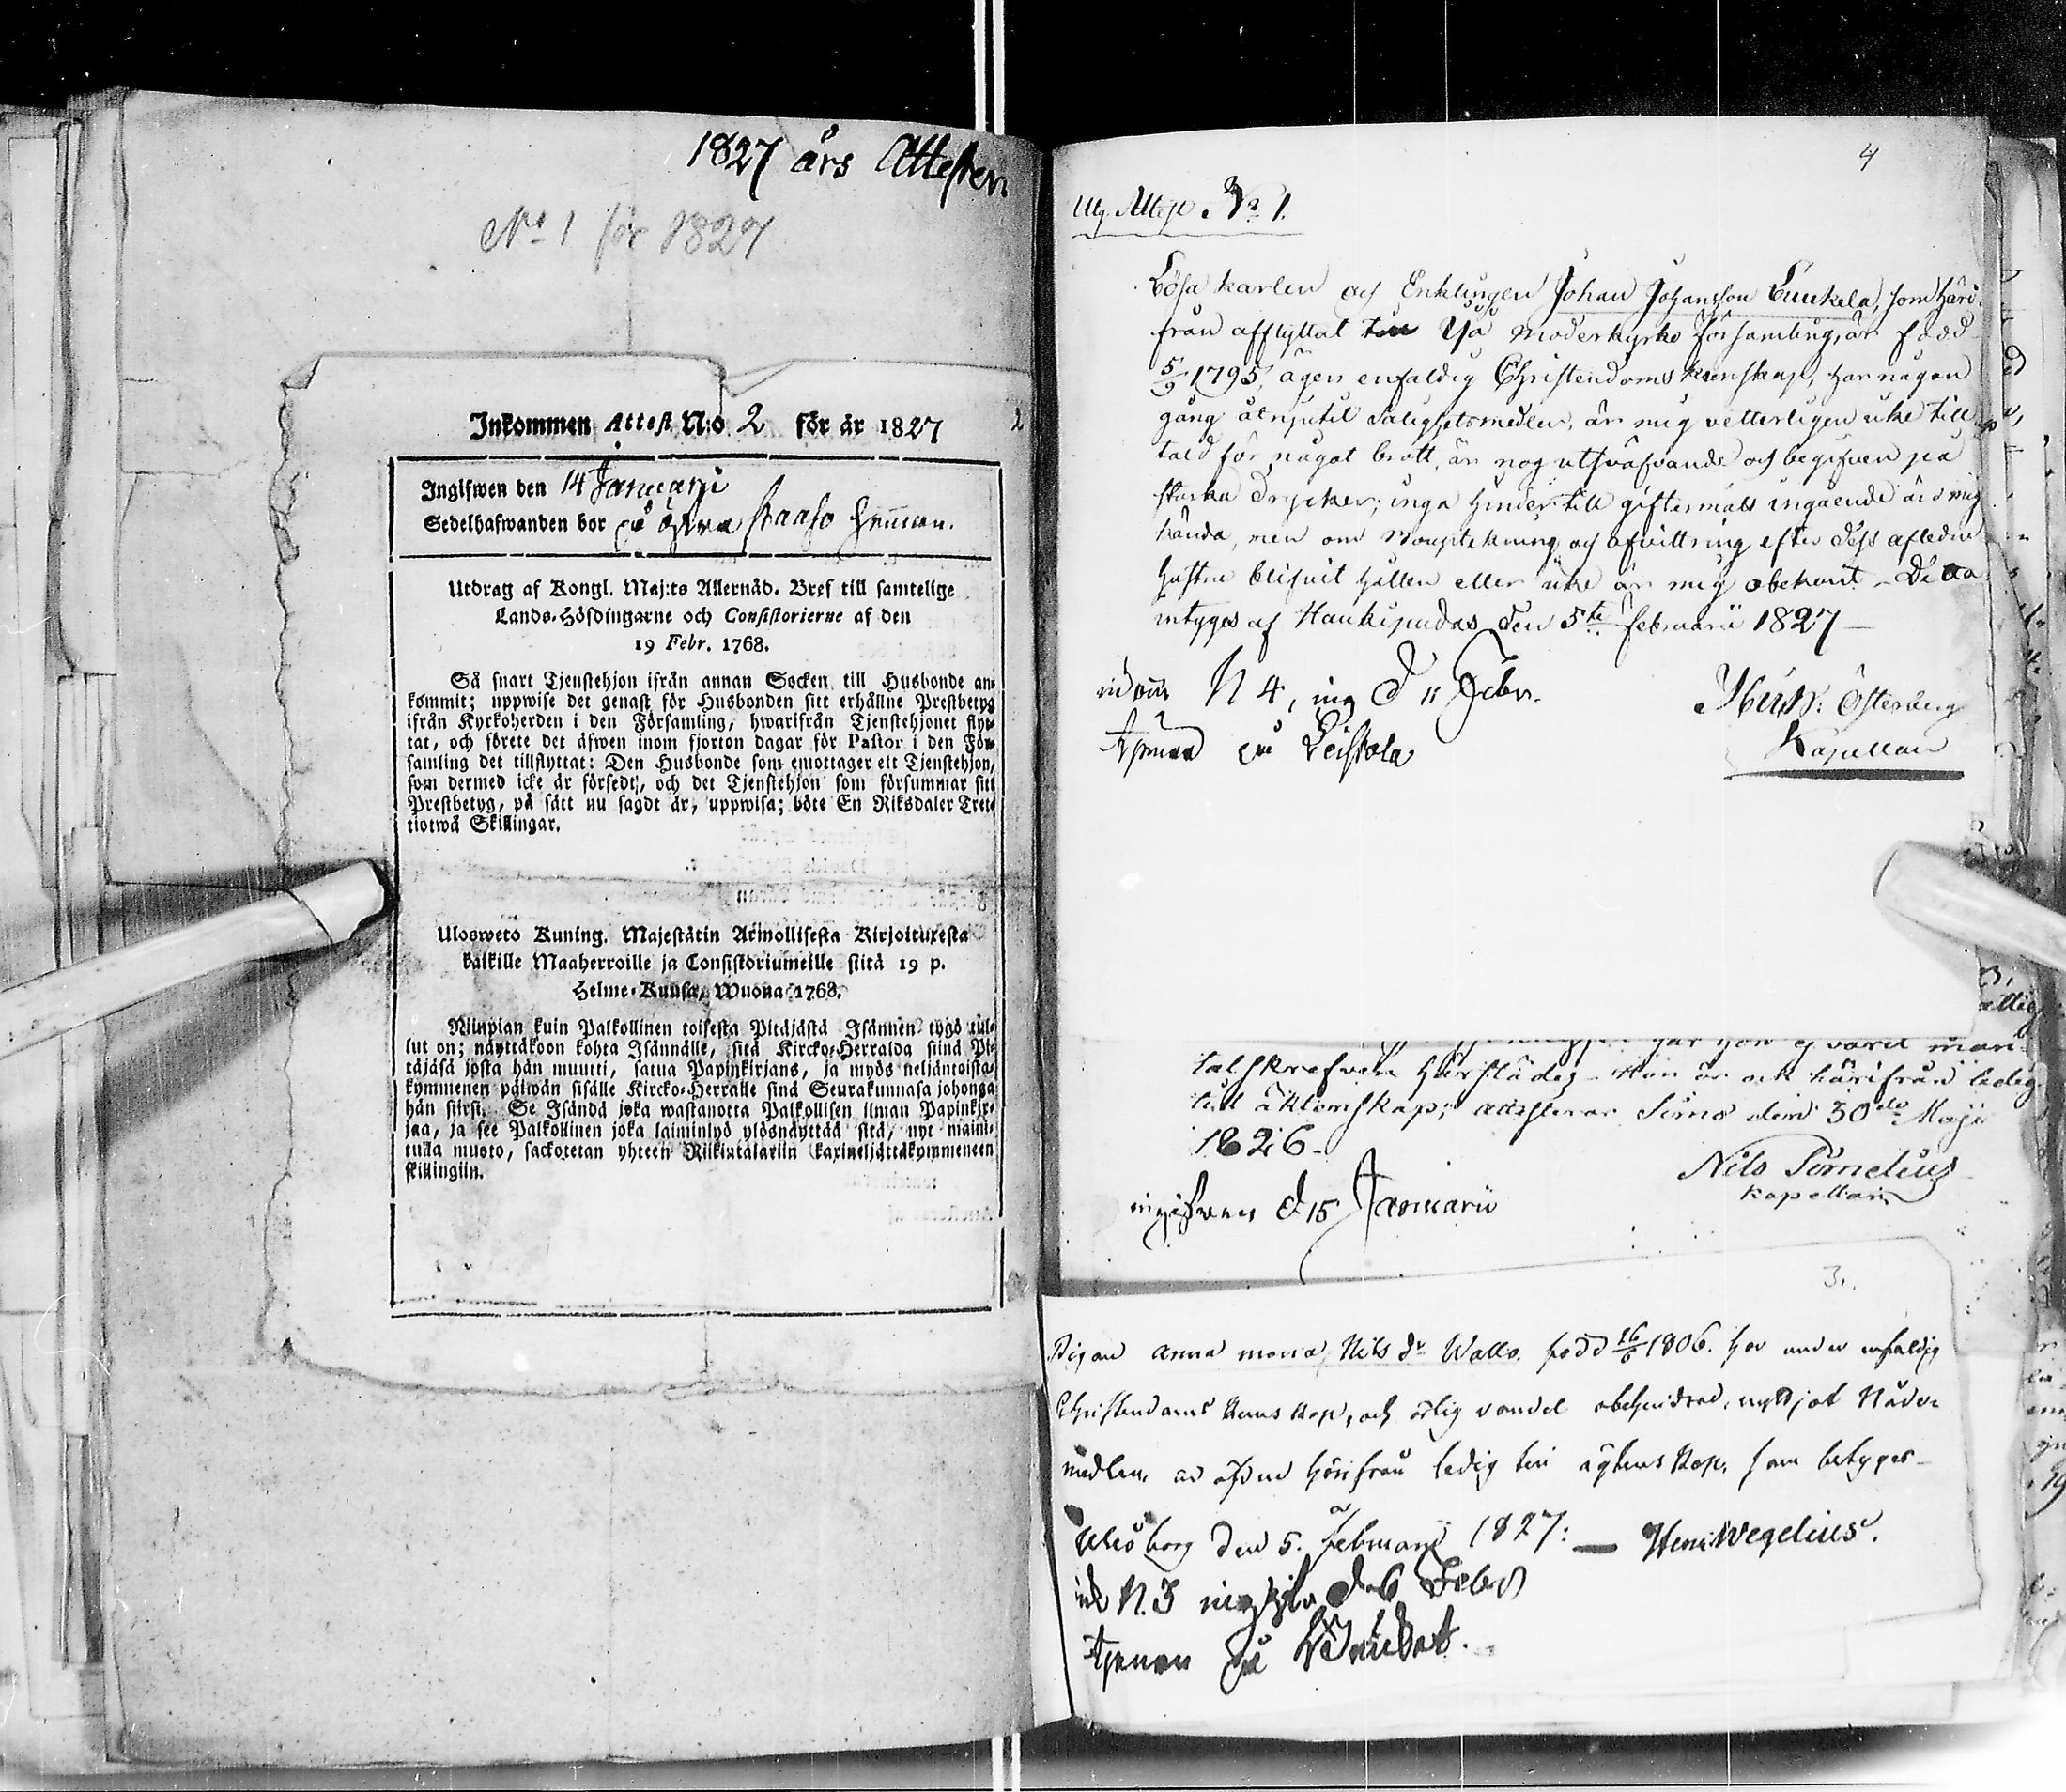 1827 års Attester.
No 1 för 1827
Inkommen Attest N:o 2 för år 1827
2
Ingifwen den 14 Januarji
Sedelhafwanden bor på östra
Utdrag af Kongl. Maj:ts Allernåd. Bref till samtelige
Lands-Höfdingarne och Consistorierne af den
19 Febr. 1768.
Så snart Tjenstehjon ifrån annan Socken till Husbonde an-
kommit; uppwise det genast för Husbonden sitt erhållne Prestbetyg
ifrån Kyrkoherden i den Församling, hwarifrån Tjenstehjonet flyt-
tat, och förete det äfwen inom fjorton dagar för Pastor i den För-
samling det tillflyttat: Den Husbonde som emottager ett Tjenstehjon,
som dermed icke är försedt, och det Tjenstehjon som försummar sitt
Prestbetyg, på sätt nu sagdt är, uppwisa; böte En Riksdaler Tret-
tiotwå Skillingar.
Ulosweto Kuning. Majestätin Armollisesta Kirjoituxesta
kaikille Maaherroille ja Consistoriumeille siitä 19 p.
Helme-Kuusa, Wuona 1768.
Niinpian kuin Palkollinen toisesta Pitäjästä Isännen tygö tul-
lut on; näyttäköön kohta Isännälle, sitä Kircko-Herralda siinä Pi-
täjäsä josta hän muutti, satua Papinkirjans, ja myös neljäntoista-
kymmenen päiwän sisälle Kircko-Herralle sinä Seurakunnasa johonga
hän siirsi. Se Isändä joka wastanotta Palkollisen ilman Papinkir-
jaa, ja see Palkollinen joka laiminlyö ylösnäyttää sitä, nyt maini-
tulla muoto, sackotetan yhteen Riikintalariin kaxineljättäkymmeneen
skillingiin.
4
Utg. Attest No 1.
Lösa karlen och Enklingen Johan Johansson Kunkela, som häri-
från afflyttat till Ijo moderkyrko församling, är född
5/9 1795, äger enfaldig Christendoms kunskap, har någon
gång åtnjutit Salighetsmedlen, är mig vetterligen icke till-
tald för något brott, är nog utsväfvande och begifven på
starka Drycker; inga hinder till giftermåls ingående äro mig
kända, men om Bouptekning och afvittring efter dess aflidne
hustru blifvit hållen eller icke är mig obekant - Detta
intygas af Haukipudas den 5te februarii 1827 -
N 4, ing d 11 Febr.
tjenar på Leistola
Österberg
Kapellan
har hon ej varit man-
talskrefven härstädes - Hon är ock härifrån ledig
till äktenskap; attesterar Simo den 30de Maji
1826 -
Nils Pömelius
kapellan
ingifven d 15 Januarii
3.
Pigan Anna Maria Nils dr Wallo. född 16/6 1806. har under enfaldig
Christendoms kunskap, och ärlig vandel obehindrad, nyttjat Nåde-
medlen, är äfven härifrån ledig till ägtenskap, som betygas -
Uleåborg den 5. februari 1827: — Henr Wegelius.
ink N. 3 ingifv d. 6 Febr
tjenar på